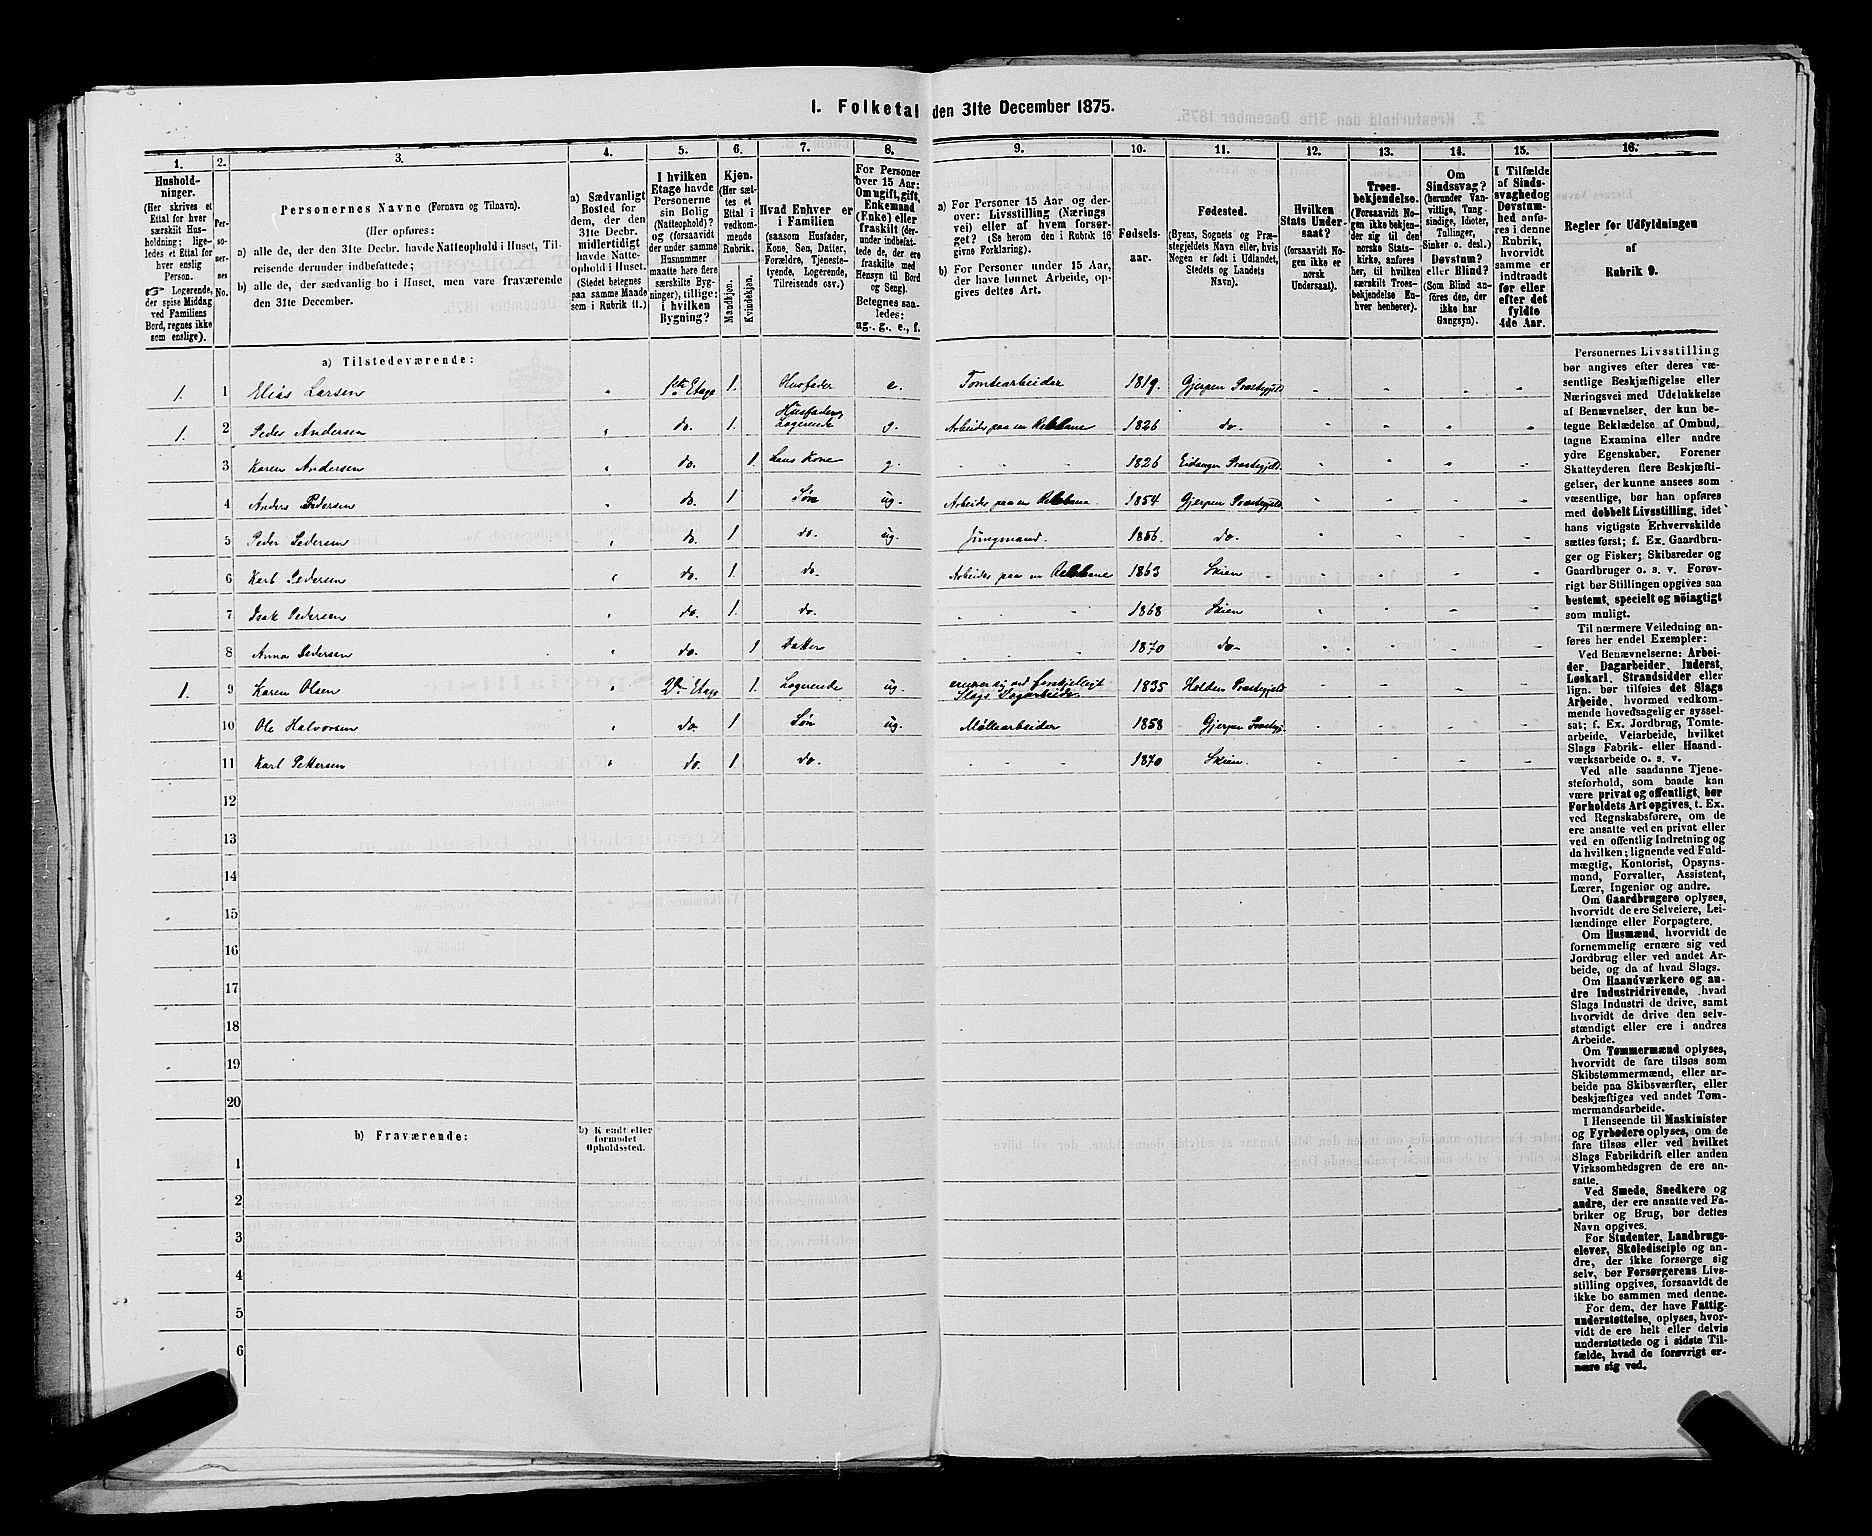 I. Folketal den 31te December 1875.
1.
Hushold-
ninger.
(Her skrives et
Ettal for hver
særskilt Hus-
holdning; lige-
ledes et Ettal for
hver enslig
Person.
☞ Logerende,
der spise Middag
ved Familiens
Bord, regnes ikke
som enslige).
2.
Per-
so-
ner-
nes
No.
3.
Personernes Navne (Fornavn og Tilnavn).
(Her opføres:
a) alle de, der den 31te Decbr. havde Natteophold i Huset, Til-
reisende derunder indbefattede;
b) alle de, der sædvanlig bo i Huset, men vare fraværende
den 31te December.
4.
a) Sædvanligt
Bosted for
dem, der den
31te Decbr.
midlertidigt
havde Natte-
ophold i Huset.
(Stedet betegnes
paa samme Maade
som i Rubrik 11.)
5.
I hvilken
Etage havde
Personerne
sin Bolig
(Natteophold)?
og (forsaavidt
der under samme
Husnummer
maatte høre flere
særskilte Byg-
ninger), tillige:
i hvilken
Bygning?
6.
Kjøn.
(Her sæt-
tes et
Ettal i
vedkom-
mende
Rubrik.
Mandkjøn.
Kvindekjøn.
7.
Hvad Enhver er
i Familien
(saasom Husfader,
Kone, Søn, Datter,
Forældre, Tjeneste-
tyende, Logerende,
Tilreisende osv.)
8.
For Personer
over 15 Aar:
Om ugift, gift,
Enkemand
(Enke) eller
fraskilt (der-
under indbefat-
tede de, der ere
fraskilte med
Hensyn til Bord
og Seng).
Betegnes saa-
ledes:
ug., g., e., f.
9.
a) For Personer 15 Aar og der-
over: Livsstilling (Nærings-
vei) eller af hvem forsør-
get? (Se herom den i Rubrik 16
givne Forklaring).
b) For Personer under 15 Aar,
der have lønnet Arbeide, op-
gives dettes Art.
10.
Fødsels-
aar.
11.
Fødested.
(Byens, Sognets og Præ-
stegjeldets Navn eller, hvis
Nogen er født i Udlandet,
Stedets og Landets
Navn).
12.
Hvilken
Stats Under-
saat?
(forsaavidt No-
gen ikke er
norsk
Undersaat).
13.
Troes-
bekjendelse.
(Forsaavidt No-
gen ikke bekjen-
der sig til den
norske Stats-
kirke, anføres
her, til hvilken
særskilt Troes-
bekjendelse En-
hver henhører).
14.
Om
Sindssvag?
(herunder Van-
vittige, Tung-
sindige, Idioter,
Tullinger,
Sinker o. desl.)
Døvstum?
eller Blind?
(Som Blind an-
føres den, der
ikke har
Gangsyn).
15.
I Tilfælde
af Sinds-
svaghed og
Døvstum-
hed anfø-
res i denne
Rubrik,
hvorvidt
samme er
indtraadt
før eller
efter det
fyldte
4de Aar.
16.
Regler for Udfyldningen
af
Rubrik 9.
a) Tilstedeværende:
1. 1 Elias Larsen " 1ste Etage 1. Husfader e. Tomtearbeider 1819. Gjerpen Præstegjeld - - - -
1. 2 Peder Andersen " do. 1. Husfader, Logerende g. Arbeider paa en Rebbane 1826 do. - - - -
3 Karen Andersen " do. 1. Hans Kone g. " " 1826 Eidanger Præstegjeld. - - - -
4 Anders Pedersen " do. 1 Søn ug. Arbeider paa en Rebbane. 1854 Gjerpen Præstegjeld. - - - -
5 Peder Pedersen " do. 1 do. ug. Jungmand. 1856. do. - - - -
6 Karl Pedersen " do. 1. do. Arbeider paa en Rebbane 1863 Skien - - - -
7 Isak Pedersen " do. 1. do. " " 1868 Skien - - - -
8 Anna Pedersen " do. 1 Datter " " 1870 do - - - -
1. 9 Karen Olsen " 2den Etage 1. Logerende ug. ernærer sig ved forskjelligt Slags Dagarbeide 1835 Holden Præstegjeld - - - -
10 Ole Halvorsen " do. 1 Søn ug. Møllearbeider 1858 Gjerpen Præstegj. - - - -
11 Karl Pettersen " do. 1 do. - - 1870 Skien. - - - -
12
13
14
15
16
17
18
19
20
b) Fraværende:
b) Kjendt eller
formodet
Opholdssted.
1
2
3
4
5
6
Personernes Livsstilling
bør angives efter deres væ-
sentlige Beskjæftigelse eller
Næringsvei med Udelukkelse
af Benævnelser, der kun be-
tegne Beklædelse af Ombud,
tagne Examina eller andre
ydre Egenskaber. Forener
Skatteyderen flere Beskjæfti-
gelser, der kunne ansees som
væsentlige, bør han opføres
med dobbelt Livsstilling, idet
hans vigtigste Erhvervskilde
sættes først; f. Ex. Gaardbru-
ger og Fisker; Skibsreder og
Gaardbruger o. s. v. Forøv-
rigt bør Stillingen opgives saa
bestemt, specielt og nöiagtigt
som muligt.
Til nærmere Veiledning an-
føres her endel Exempler:
Ved Benævnelserne: Arbei-
der, Dagarbeider, Inderst,
Løskarl, Strandsidder eller
lign. bør tilføies det Slags
Arbeide, hvormed vedkom-
mende hovedsagelig er syssel-
sat; f. Ex. Jordbrug, Tomte-
arbeide, Veiarbeide, hvilket
Slags Fabrik- eller Haand-
værksarbeide o. s. v.
Ved alle saadanne Tjene-
steforhold, som baade kan
være privat og offentligt, bør
Forholdets Art opgives, t. Ex.
ved Regnskabsførere, om de
ere ansatte ved en privat eller
ved en offentlig Indretning og
da hvilken; lignende ved Fuld-
mægtig, Kontorist, Opsyns-
mand, Forvalter, Assistent,
Lærer, Ingeniør og andre.
Om Gaardbrugere oplyses,
hvorvidt de ere Selveiere, Lei-
lændinge eller Forpagtere.
Om Husmænd, hvorvidt de
fornemmelig ernære sig ved
Jordbrug eller ved andet Ar-
beide, og da af hvad Slags.
Om Haandværkere og an-
dre Industridrivende, hvad
Slags Industri de drive, samt
hvorvidt de drive den selv-
stændigt eller ere i andres
Arbeide.
Om Tømmermænd oplyses,
hvorvidt de fare tilsøs som
Skibstømmermænd, eller ar-
beide paa Skibsværfter, eller
beskjæftiges ved andet Tøm-
mermandsarbeide.
I Henseende til Maskinister
og Fyrbødere oplyses, om de
fare tilsøs eller ved hvilket
Slags Fabrikdrift eller anden
Virksomhedsgren de ere an-
satte.
Ved Smede, Snedkere og
andre, der ere ansatte ved Fa-
briker og Brug, bør dettes
Navn opgives.
For Studenter, Landbrugs-
elever, Skoledisciple og an-
dre, der ikke forsørge sig
selv, bør Forsørgerens Livs-
stilling opgives, forsaavidt de
ikke bo sammen med denne.
For dem, der have Fattig-
understøttelse, oplyses, hvor-
vidt de ere helt eller delvis
understøttede og i sidste Til-
fælde, hvad de forøvrigt er-
nære sig ved.